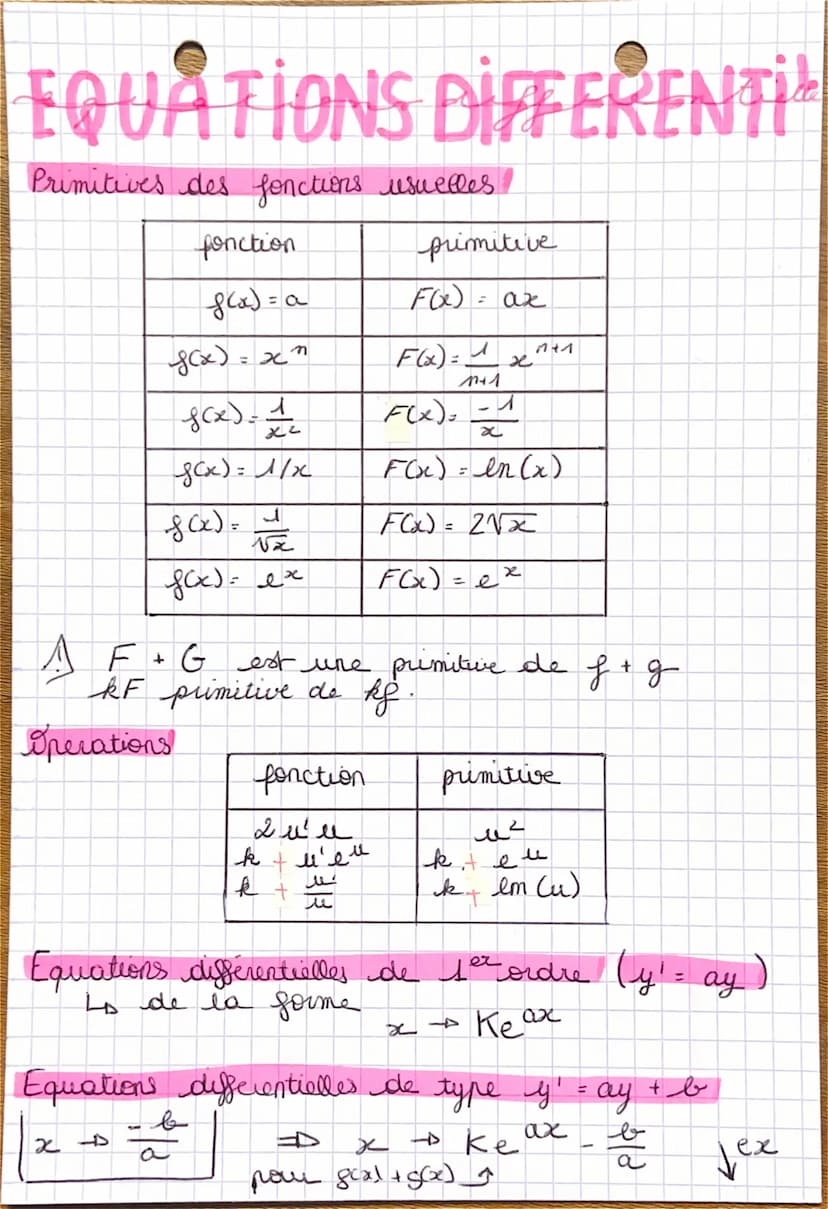 EQUATIONS DIFFERENTIelle
equations differentielle
Primitives des fonctions usuelles !
fonction primitive
f(x) = a F(x) = ax
f(x) = xⁿ F(x) = 1/n+1 xⁿ⁺¹
f(x) = 1/x² F(x) = -1/x
f(x) = 1/x F(x) = ln(x)
f(x) = 1/√x F(x) = 2√x
f(x) = eˣ F(x) = eˣ
⚠ F + G est une primitive de f + g
kF primitive de kf.
Operations
fonction primitive
2u'u u²
k + u'eᵘ k + eᵘ
k + u'/u k + ln(u)
Equations différentielles de 1er ordre (y' = ay)
↳ de la forme
x → Keᵃˣ
Equations differentielles de type y' = ay + b
x → -b/a ⇒ x → Keᵃˣ - b/a ↓ex
pour f(x) + g(x) ↑